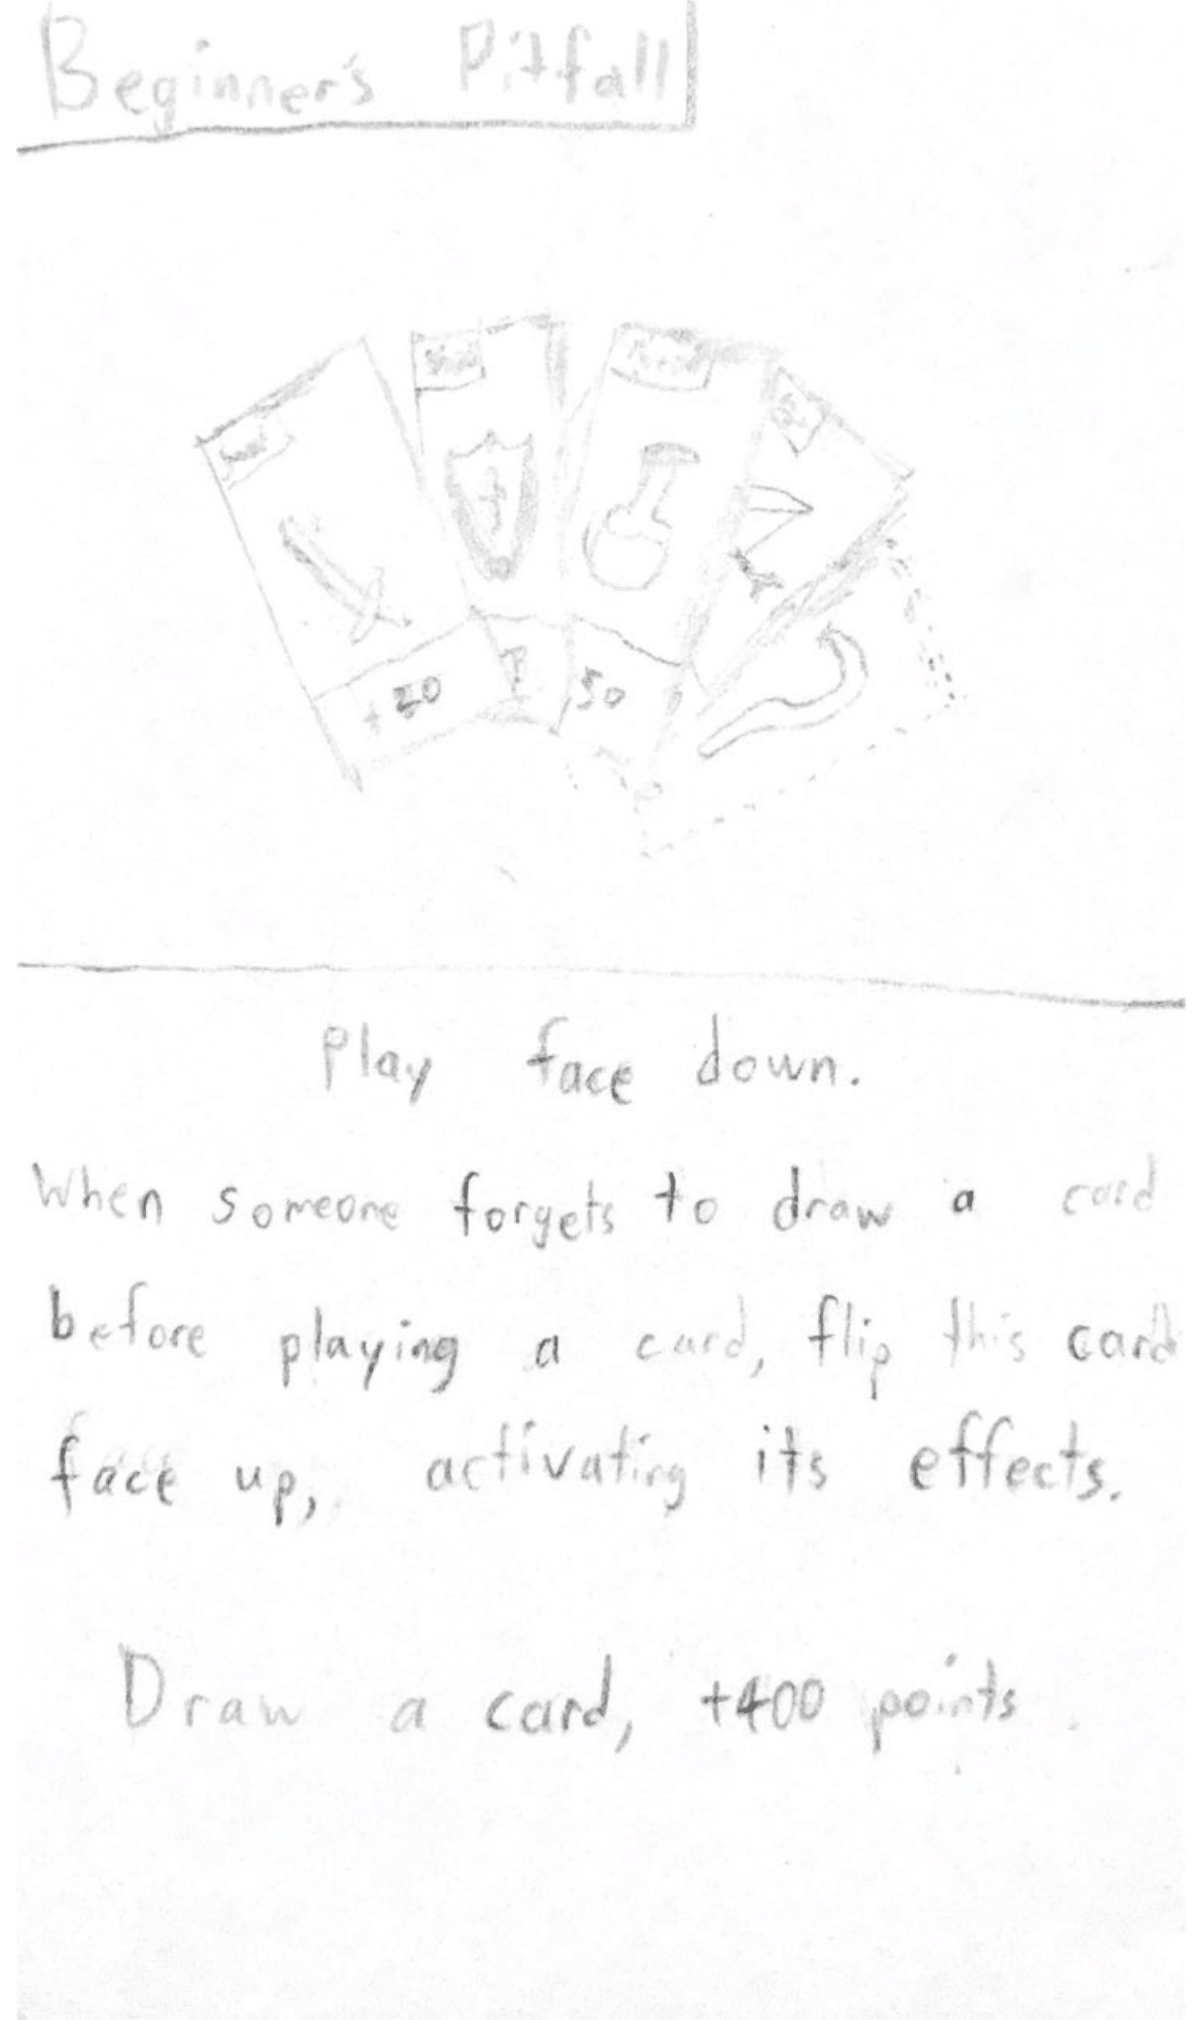 Beginner's Pitfall
+20
50
Play face down.
When someone forgets to draw a card
before playing a card, flip this card
face up, activating its effects.
Draw a card, +400 points.